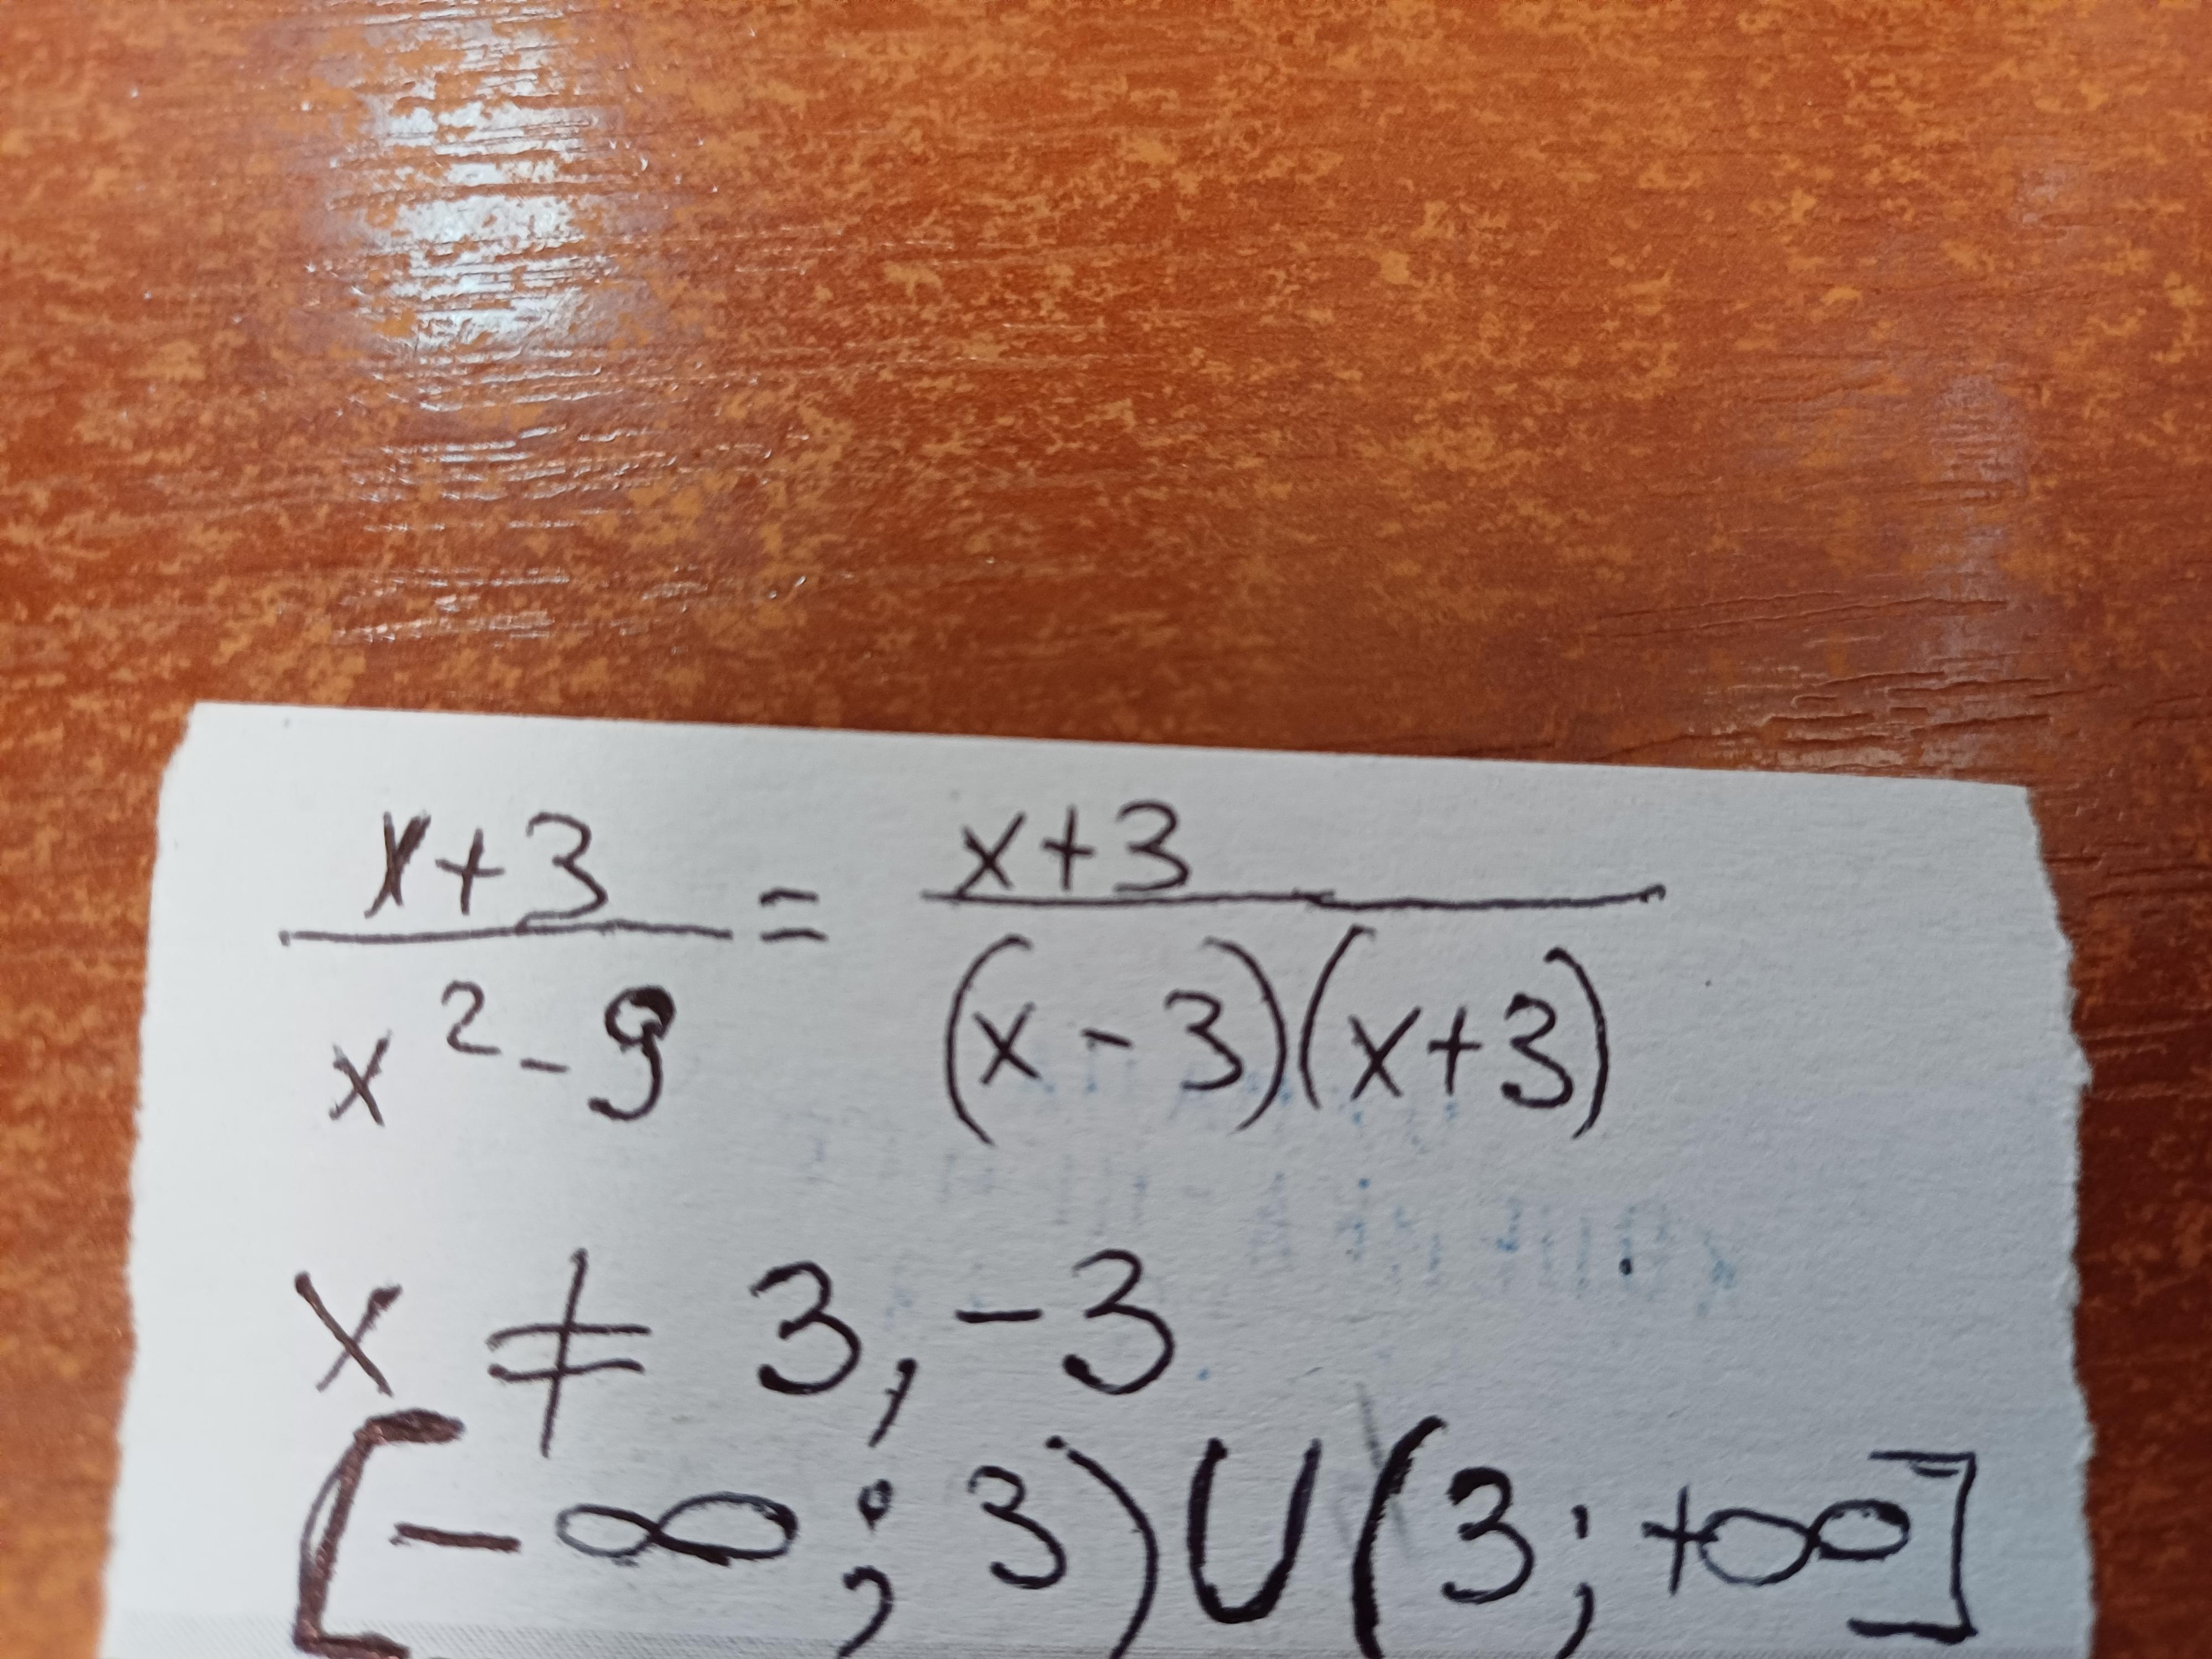 x+3/x²-9 = x+3/(x-3)(x+3)
x ≠ 3, -3
[-∞; 3)U(3; +∞]